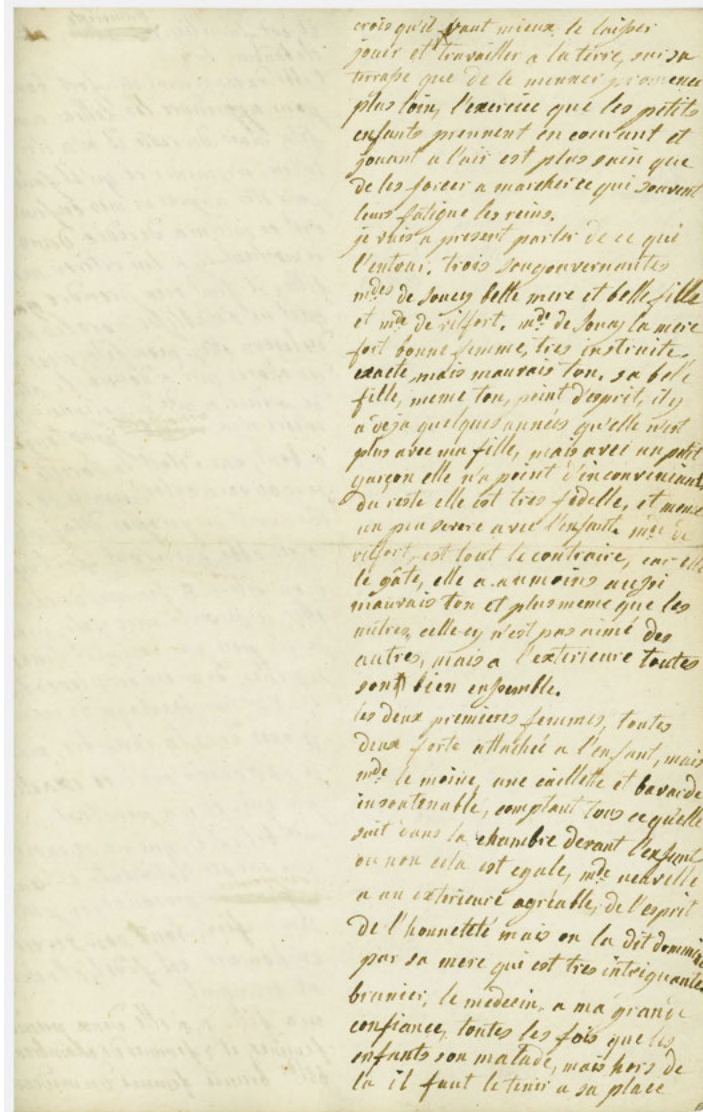 crois qu'il vaut mieux le laisser
jouer et travailler a la terre, sur sa
terrasse que de le menner promener
plus loin, l'exercice que les petits
enfants prennent en courant et
jouant a l'air est plus sain que
de les forcer a marcher ce qui souvent
leurs fatigue les reins.
je vais a present parler de ce qui
l'entour, trois sougouvernantes
mdes de soucy belle mere et belle fille
et mde de vilfort. mde de soucy la mere
fort bonne femme, tres instruite,
exacte, mais mauvais ton. sa belle
fille, meme ton, point d'esprit, il y
a deja quelques années qu'elle n'est
plus avec ma fille, mais avec un petit
garçon elle n'a point d'inconveniant,
du reste elle est tres fidelle, et meme
un peu severe avec l'enfant. mde de
vilfort, est tout le contraire, car elle
le gâte, elle a aumoins aussi
mauvais ton et plus meme que les
autres, celle cy n'est pas aimé des
autres, mais a l'exterieure toutes
sont bien ensemble.
les deux premieres femmes, toutes
deux forte attachée a l'enfant, mais
mde le moine, une caillette et bavarde
insoutenable, comptant tous ce qu'elle
sait dans la chambre devant l'enfant
ou non cela est egale, mde neuville
a un exterieure agréable, de l'esprit
de l'honneteté mais on la dit dominée
par sa mere qui est tres intriguante.
brunier, le medecin, a ma grande
confiance, toutes les fois que les
enfants son malade, mais hors de
la il faut le tenir a sa place